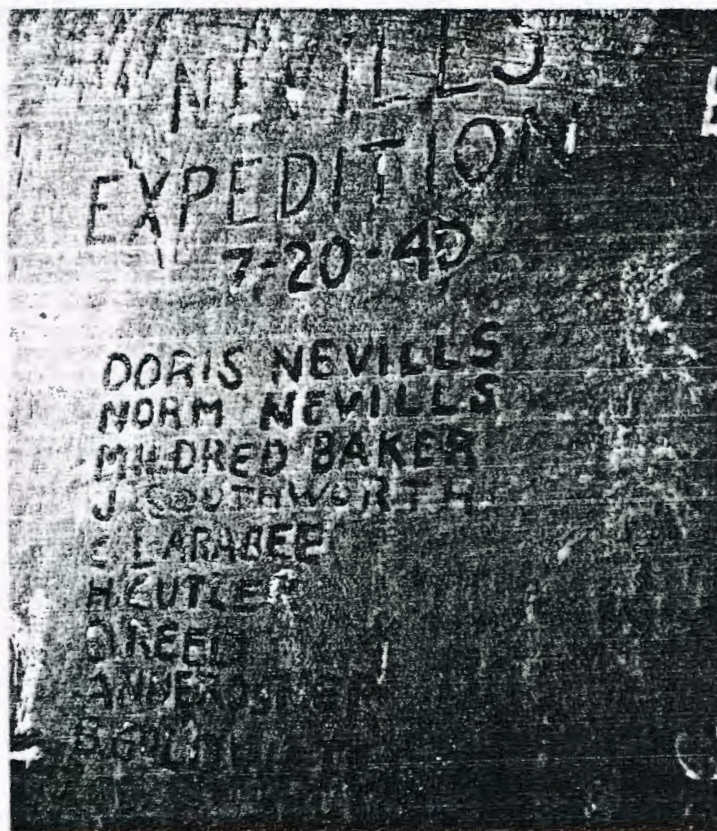 NEVILLS
EXPEDITION
7-20-40
DORIS NEVILLS
NORM NEVILLS
MILDRED BAKER
J SOUTHWORTH
C LARABEE
H CUTLER
D REED